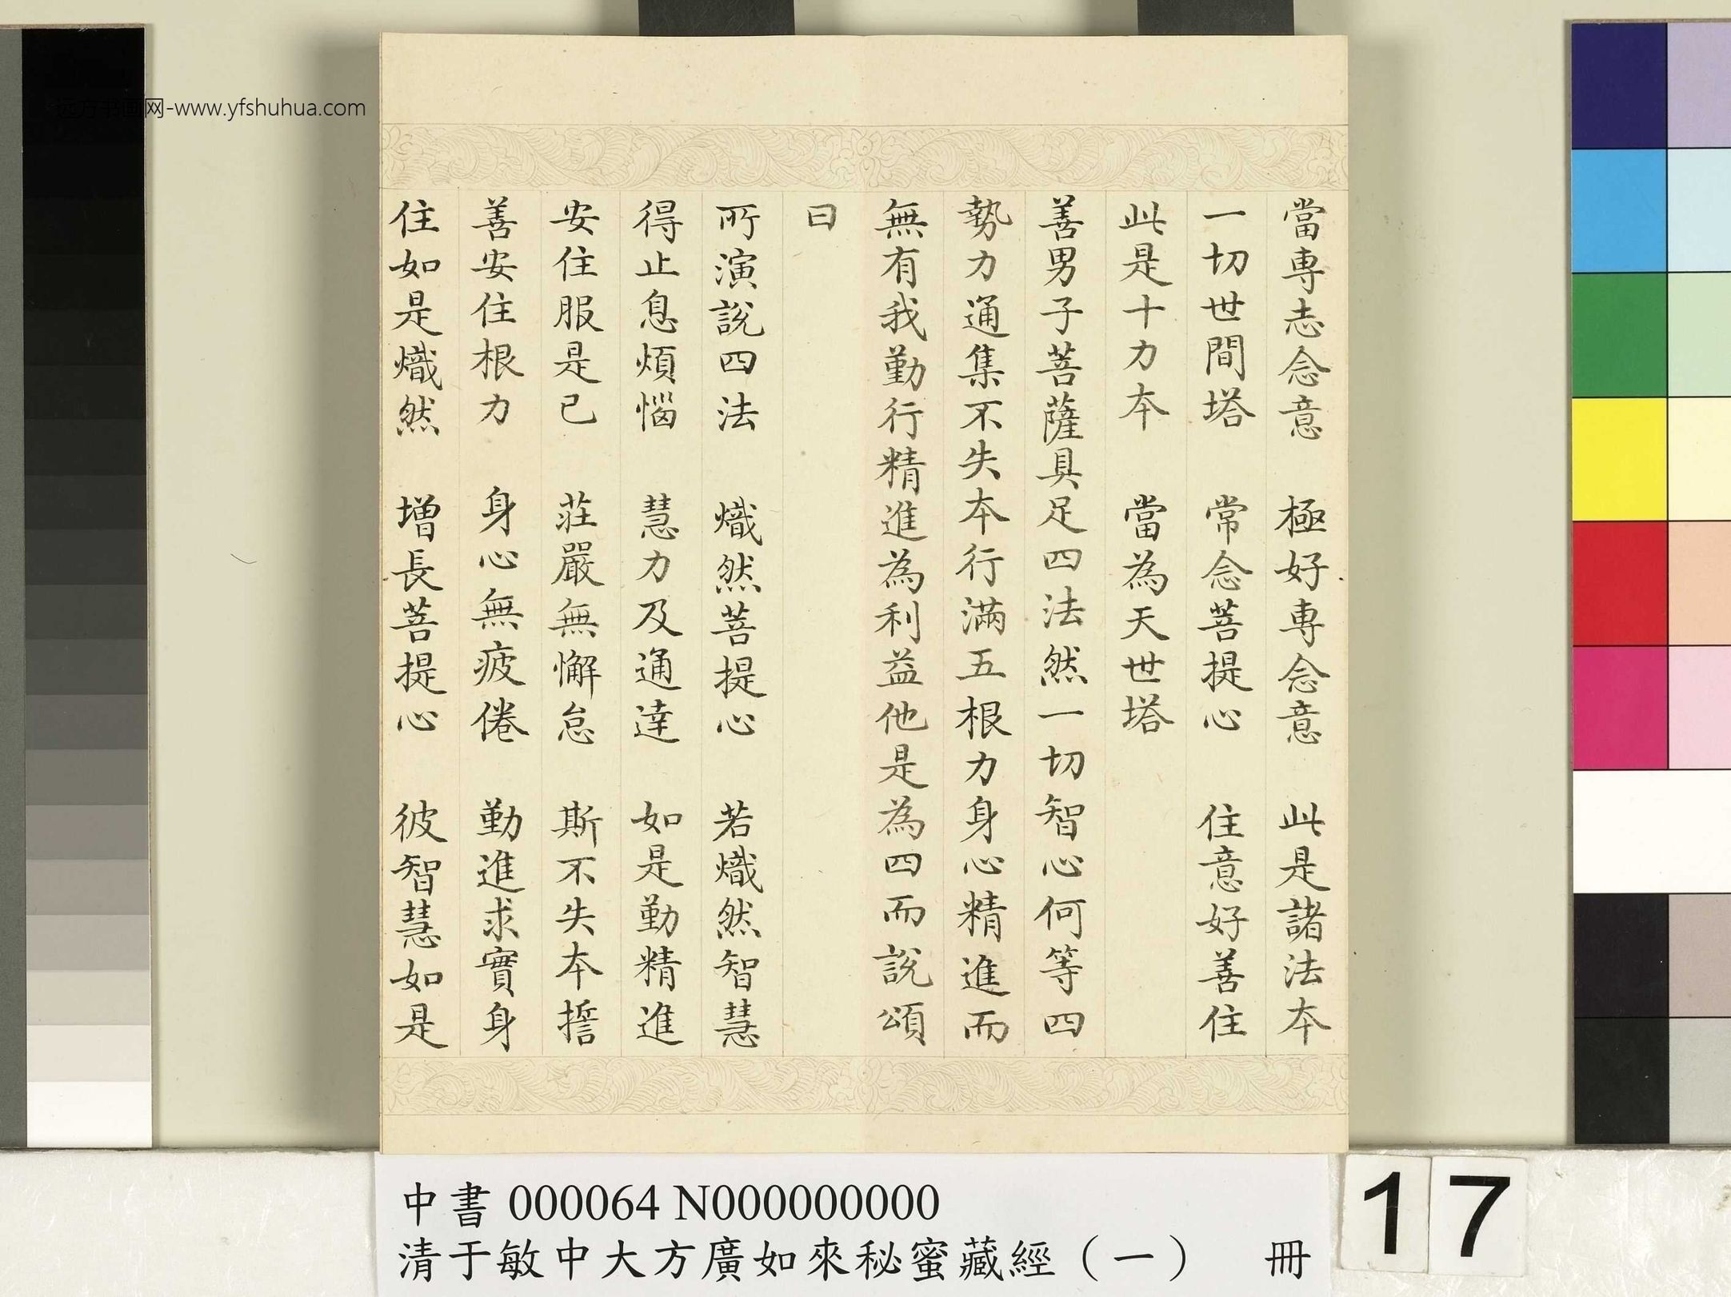 當專志念意　極好專念意　此是諸法本
一切世間塔　常念菩提心　住意好善住
此是十力本　當為天世塔
善男子菩薩具足四法然一切智心何等四
勢力通集不失本行滿五根力身心精進而
無有我勤行精進為利益他是為四而說頌
曰
所演說四法　熾然菩提心　若熾然智慧
得止息煩惱　慧力及通達　如是勤精進
安住服是已　莊嚴無懈怠　斯不失本擔
善安住根力　身心無疲倦　勤進求實身
住如是熾然　增長菩提心　彼智慧如是
中書 000064 N000000000
清于敏中大方廣如來秘蜜藏經（一）　冊
17
网-www.yfshuhua.com